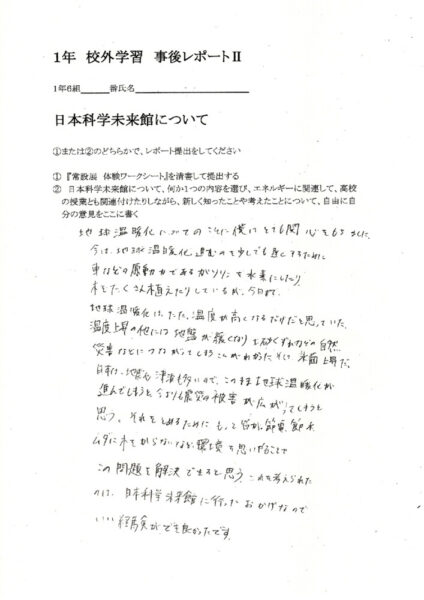 1年 校外学習 事後レポートⅡ
1年6組 番氏名
日本科学未来館について
①または②のどちらかで、レポート提出をしてください
① 『常設展 体験ワークシート』を清書して提出する
② 日本科学未来館について、何か1つの内容を選び、エネルギーに関連して、高校
の授業とも関連付けたりしながら、新しく知ったことや考えたことについて、自由に自
分の意見をここに書く
地球温暖化についてのことに僕はとても関心をもちました。
今は、地球温暖化進むのを少しでも遅くするために
車などの原動力であるガソリンを水素にしたり
木をたくさん植えたりしているが、今日まで、
地球温暖化は、ただ、温度が高くなるだけだと思っていた。
温度上昇の他には地盤が緩くなり土砂くずれなどの自然
災害などにつながってしまうことがわかった。そして 水面上昇だ。
日本は、地震や津波も多いので、このまま地球温暖化が
進んでしまうと今よりも震災の被害が広がってしまうと
思う。それをとめるために もっと 節電、節水
ムダに木をからないなど 環境を思いやることで
この問題を解決できると思う。これを考えられた
のは、日本科学未来館に行った おかげなので
いい経験ができて良かったです。